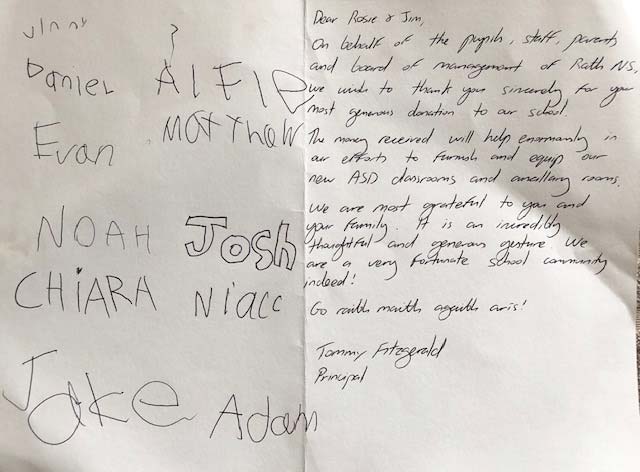 Vinny
Daniel ALFIE
Evan Matthew
NOAH Josh
CHiARA Niall
Jake Adam
Dear Rosie & Jim,
On behalf of the pupils, staff, parents
and board of management of Rath NS,
we wish to thank you sincerely for your
most generous donation to our school.
The money received will help enormously in
our efforts to furnish and equip our
new ASD classrooms and ancillary rooms.
We are most grateful to you and
your family. It is an incredibly
thoughtful and generous gesture. We
are a very fortunate school community
indeed!
Go raibh maith agaibh arís!
Tommy Fitzgerald
Principal